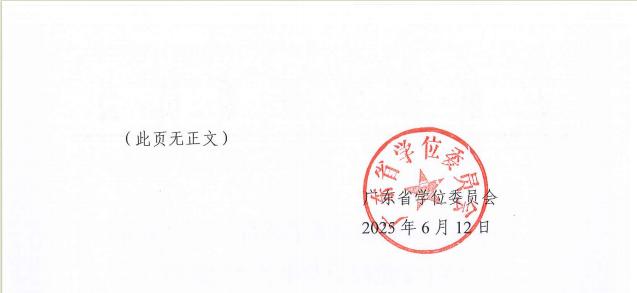 （此页无正文）
广东省学位委员会
广东省学位委员会
2025 年 6 月 12 日